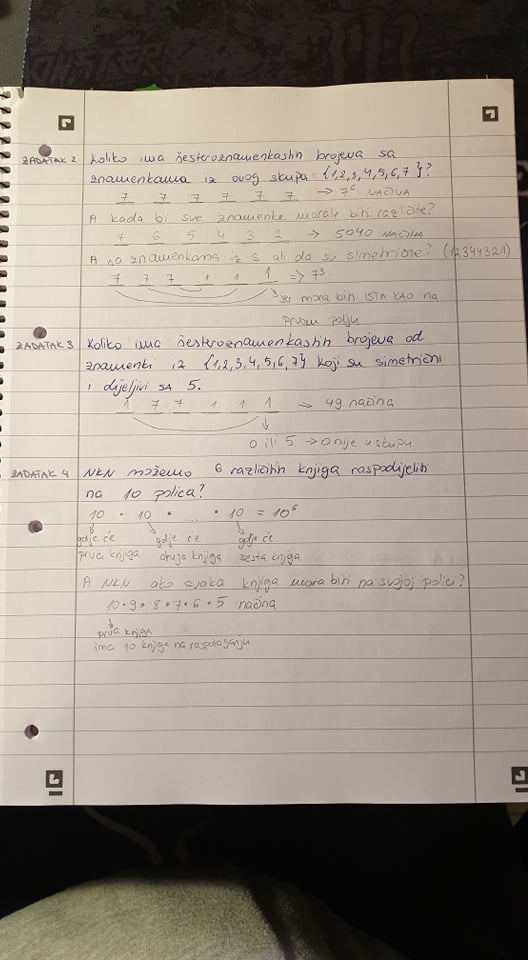 ZADATAK 2 Koliko ima šesteroznamenkastih brojeva sa
znamenkama iz ovog skupa: {1,2,3,4,5,6,7}?
7 7 7 7 7 7 → 7⁶ NAČINA
A kada bi sve znamenke morale biti različite?
7 6 5 4 3 2 → 5040 NAČINA
A sa znamenkama iz S ali da su simetrične? (12344321)
7 7 7 1 1 1 ⇒ 7³
jer mora biti ISTA KAO na
prvom polju
ZADATAK 3 Koliko ima šesteroznamenkastih brojeva od
znamenki iz {1,2,3,4,5,6,7} koji su simetrični
i djeljivi sa 5.
1 7 7 1 1 1 → 49 načina
0 ili 5 → 0 nije u skupu
ZADATAK 4 NKN možemo 6 različitih knjiga raspodijeliti
na 10 polica?
10 · 10 · ..... · 10 = 10⁶
gdje će gdje će gdje će
prva knjiga druga knjiga šesta knjiga
A NKN ako svaka knjiga mora biti na svojoj polici?
10·9·8·7·6·5 načina
prva knjiga
ima 10 knjiga na raspolaganju